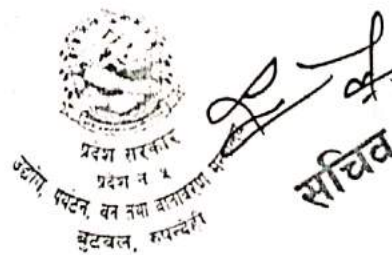 प्रदेश सरकार
प्रदेश नं ५
उद्योग, पर्यटन, वन तथा वातावरण
बुटवल, रुपन्देही
सचिव